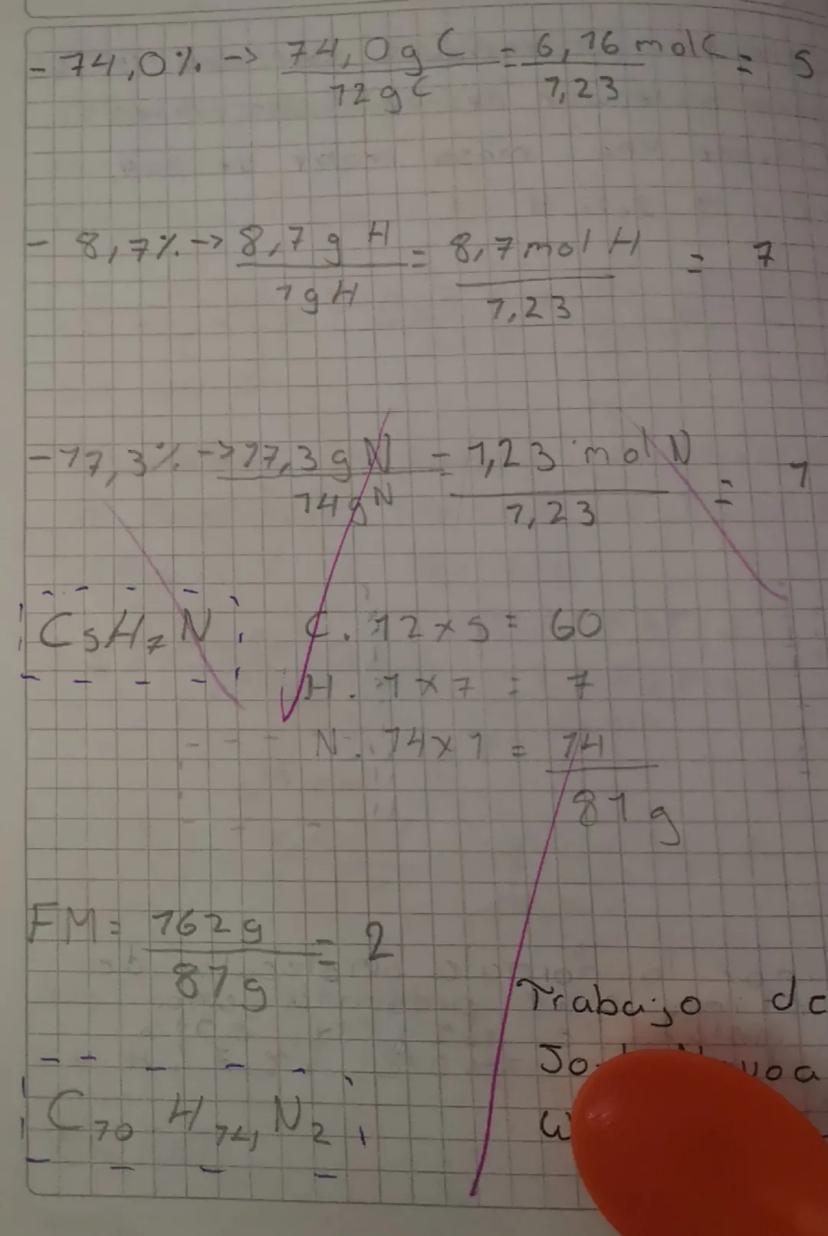 - 74,0% -> 74,0g C / 12gC = 6,16 mol C / 1,23 = 5
- 8,7% -> 8,7 g H / 1gH = 8,7 mol H / 1,23 = 7
- 17,3% -> 17,3 g N / 14gN = 1,23 mol N / 1,23 = 1
C5H7N
C. 12 x 5 = 60
H. 1 x 7 = 7
N. 14 x 1 = 14
81g
FM = 162g / 81g = 2
C10 H14 N2
Trabajo de